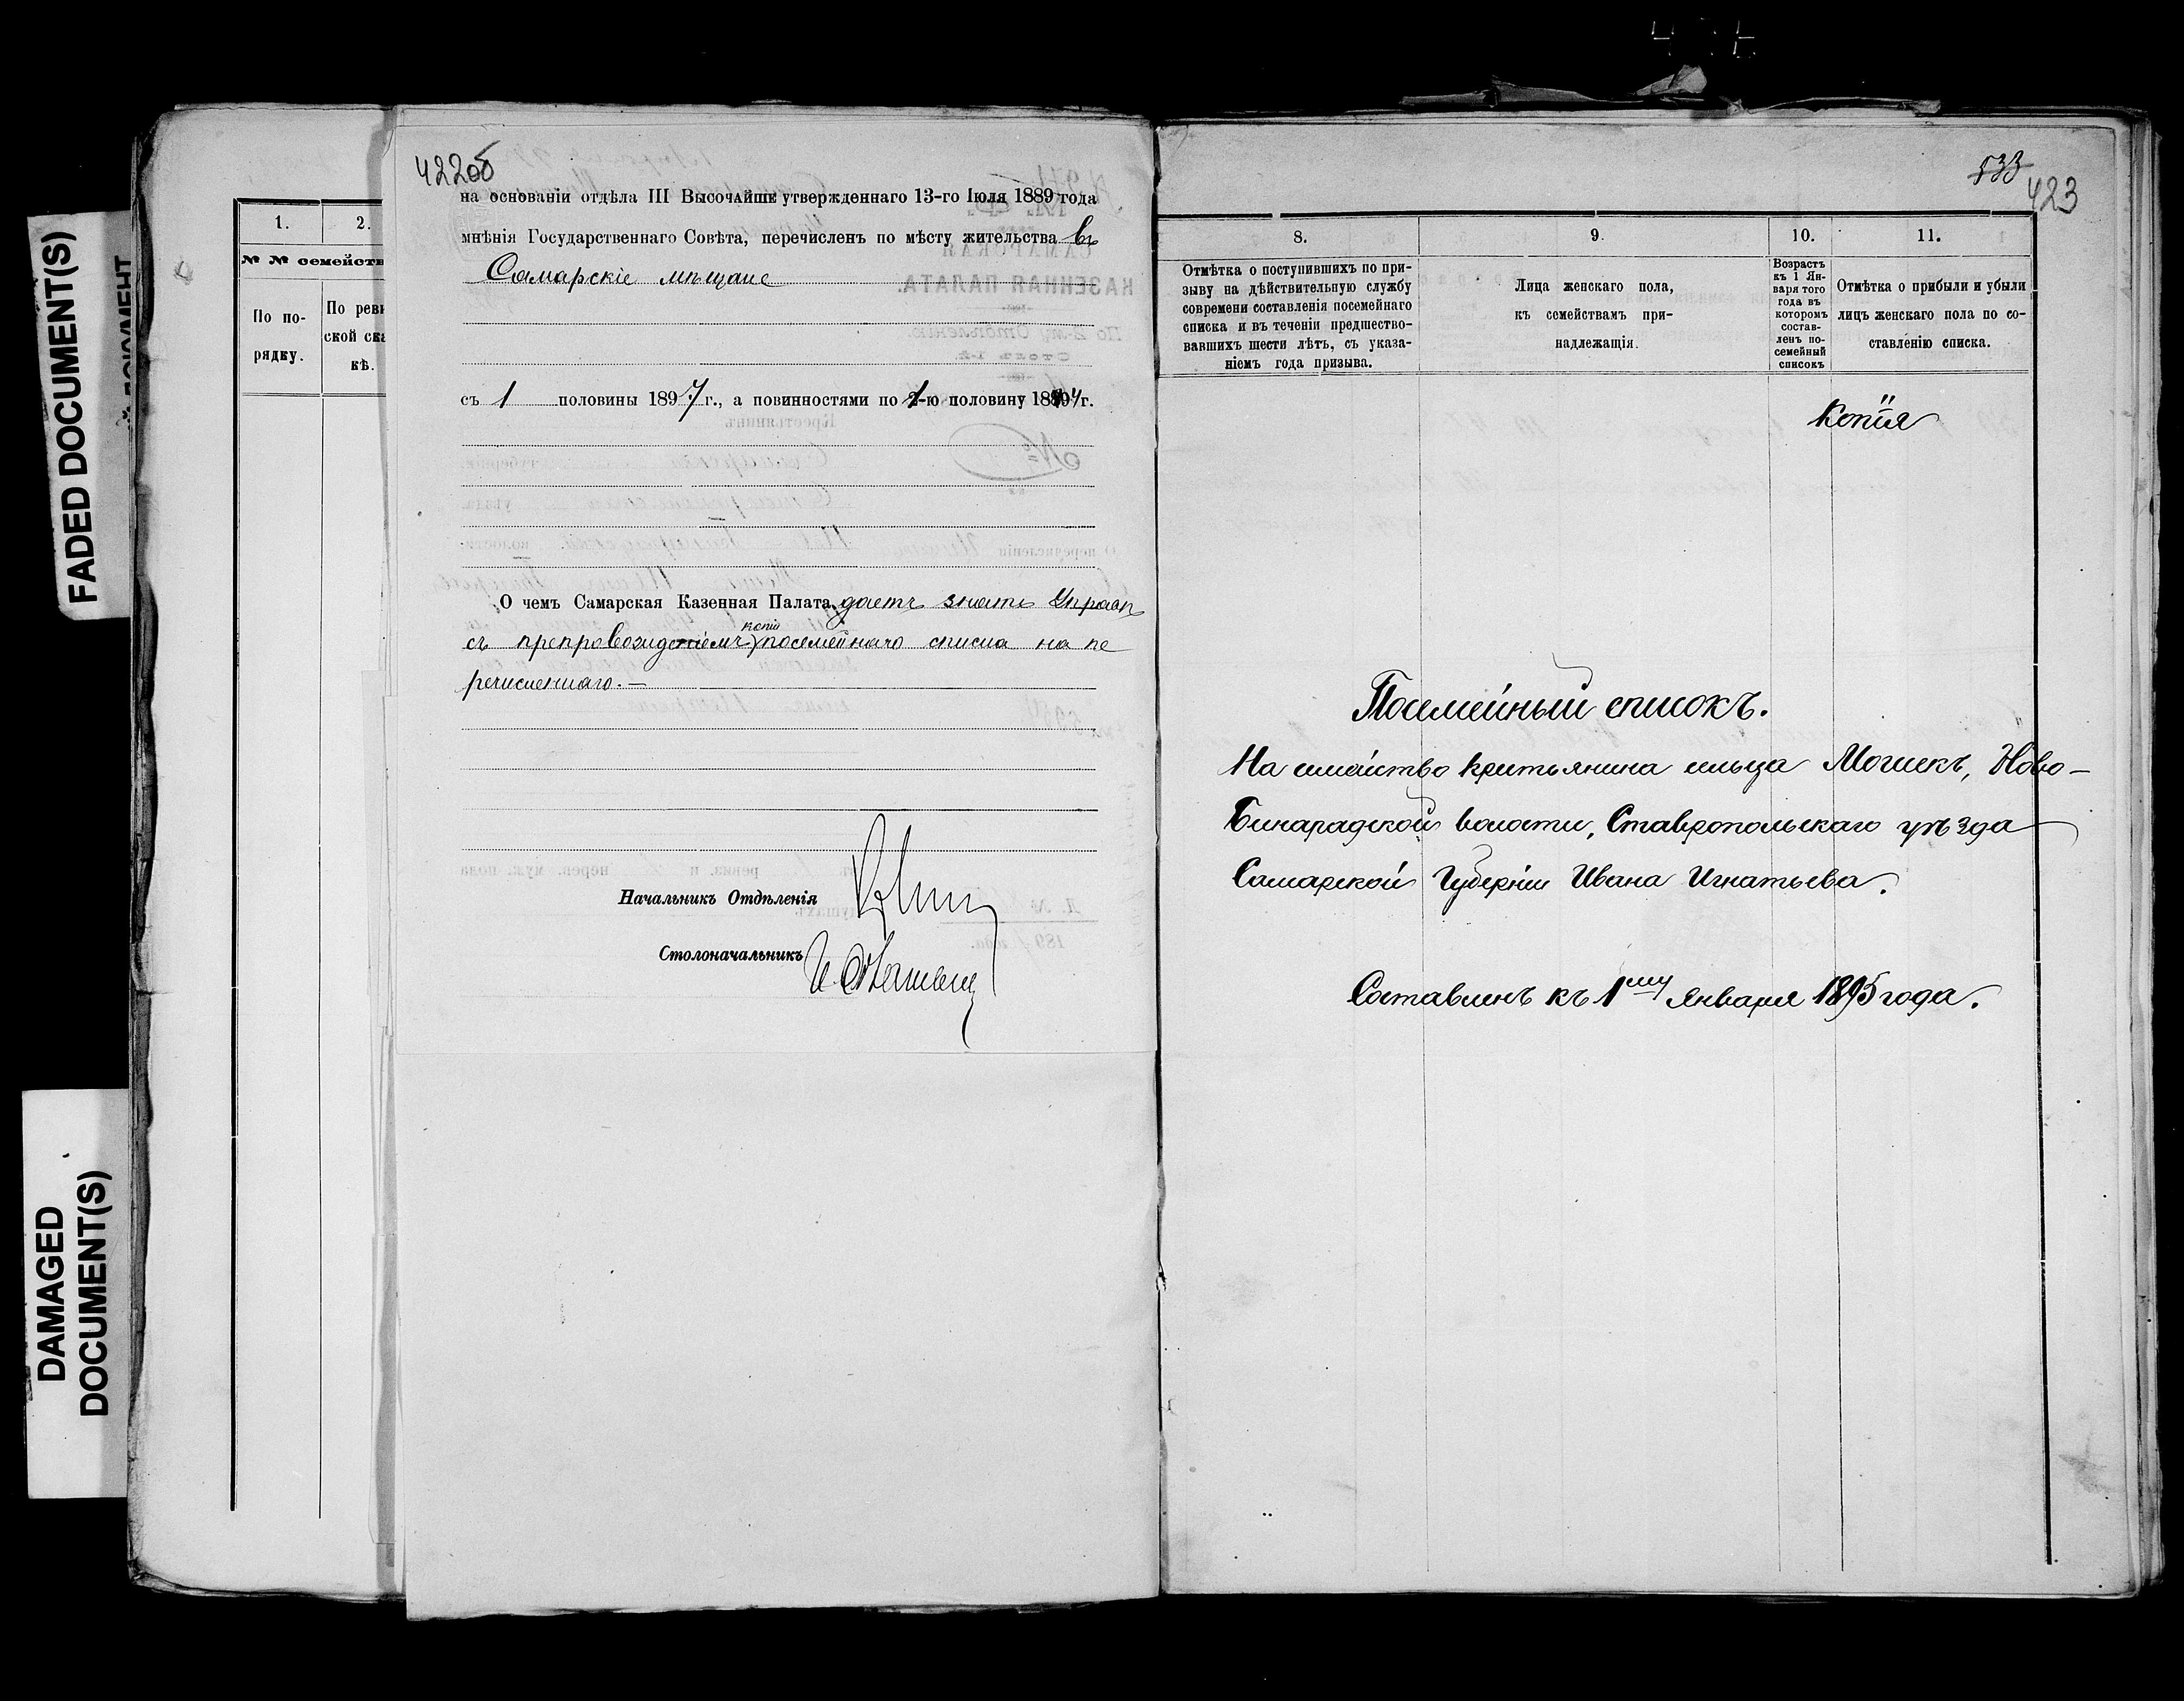 FADED DOCUMENT(S)
DAMAGED
DOCUMENT(S)
1.
2.
№ № семейств
По по-
рядку.
По реви
ской ска
кѣ.
422об
на основаніи отдѣла III Высочайше утвержденнаго 13-го Іюля 1889 года
мнѣнія Государственнаго Совѣта, перечисленъ по мѣсту жительства въ
Самарскіе мѣщане
съ 1 половины 1897 г., а повинностями по 1-ю половину 1897 г.
О чемъ Самарская Казенная Палата даетъ знать Управѣ
копіи
съ препровожденіемъ посемейнаго списка на пе
речисленнаго. —
Начальникъ Отдѣленія
Столоначальникъ
533
423
8.
9.
10.
11.
Отмѣтка о поступившихъ по при-
зыву на дѣйствительную службу
современи составленія посемейнаго
списка и въ теченіи предшество-
вавшихъ шести лѣтъ, съ указа-
ніемъ года призыва.
Лица женскаго пола,
къ семействамъ при-
надлежащія.
Возрастъ
къ 1 Ян-
варя того
года въ
которомъ
состав-
ленъ по-
семейный
списокъ
Отмѣтка о прибыли и убыли
лицъ женскаго пола по со-
ставленію списка.
Копія
Посемейный списокъ.
На семейство крестьянина сельца Могилекъ, Ново-
Бинарадской волости, Ставропольскаго уѣзда
Самарской Губерніи Ивана Игнатьева.
Составленъ къ 1му Января 1895 года.